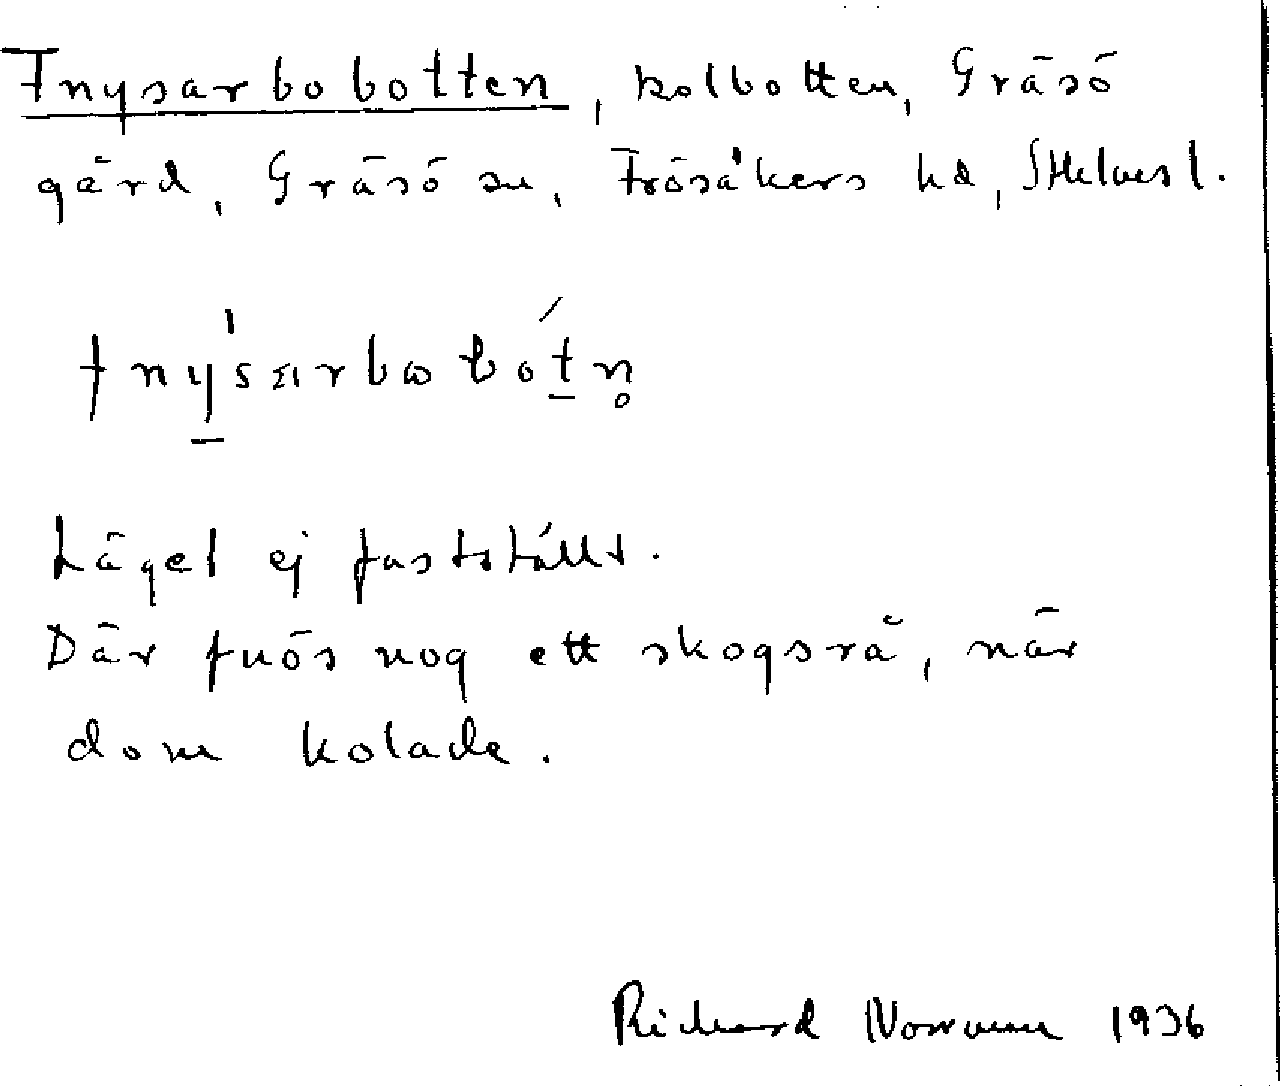 Fnysarbobotten, kolbotten, Gräsö
gård, Gräsö sn, Frösåkers hd, Sthlms l.
fnysarbobotn̥
Läget ej fastställt.
Där fnös nog ett skogsrå, när
dom kolade.
Richard Norrman 1936